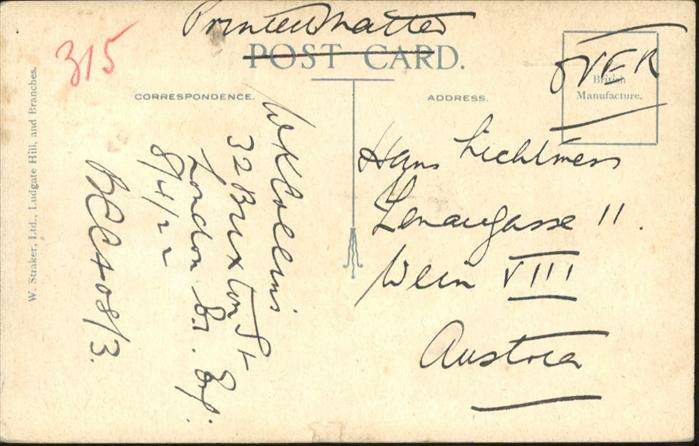 Printed matter
POST CARD.
315
OVER
British
Manufacture.
CORRESPONDENCE.
ADDRESS.
W. Straker, Ltd., Ludgate Hill, and Branches.
W K Collins
32 Brixton St
London S.1. Eng.
8/4/22
Hans Lichtmess
Lenaugasse 11.
Wein VIII
Austria